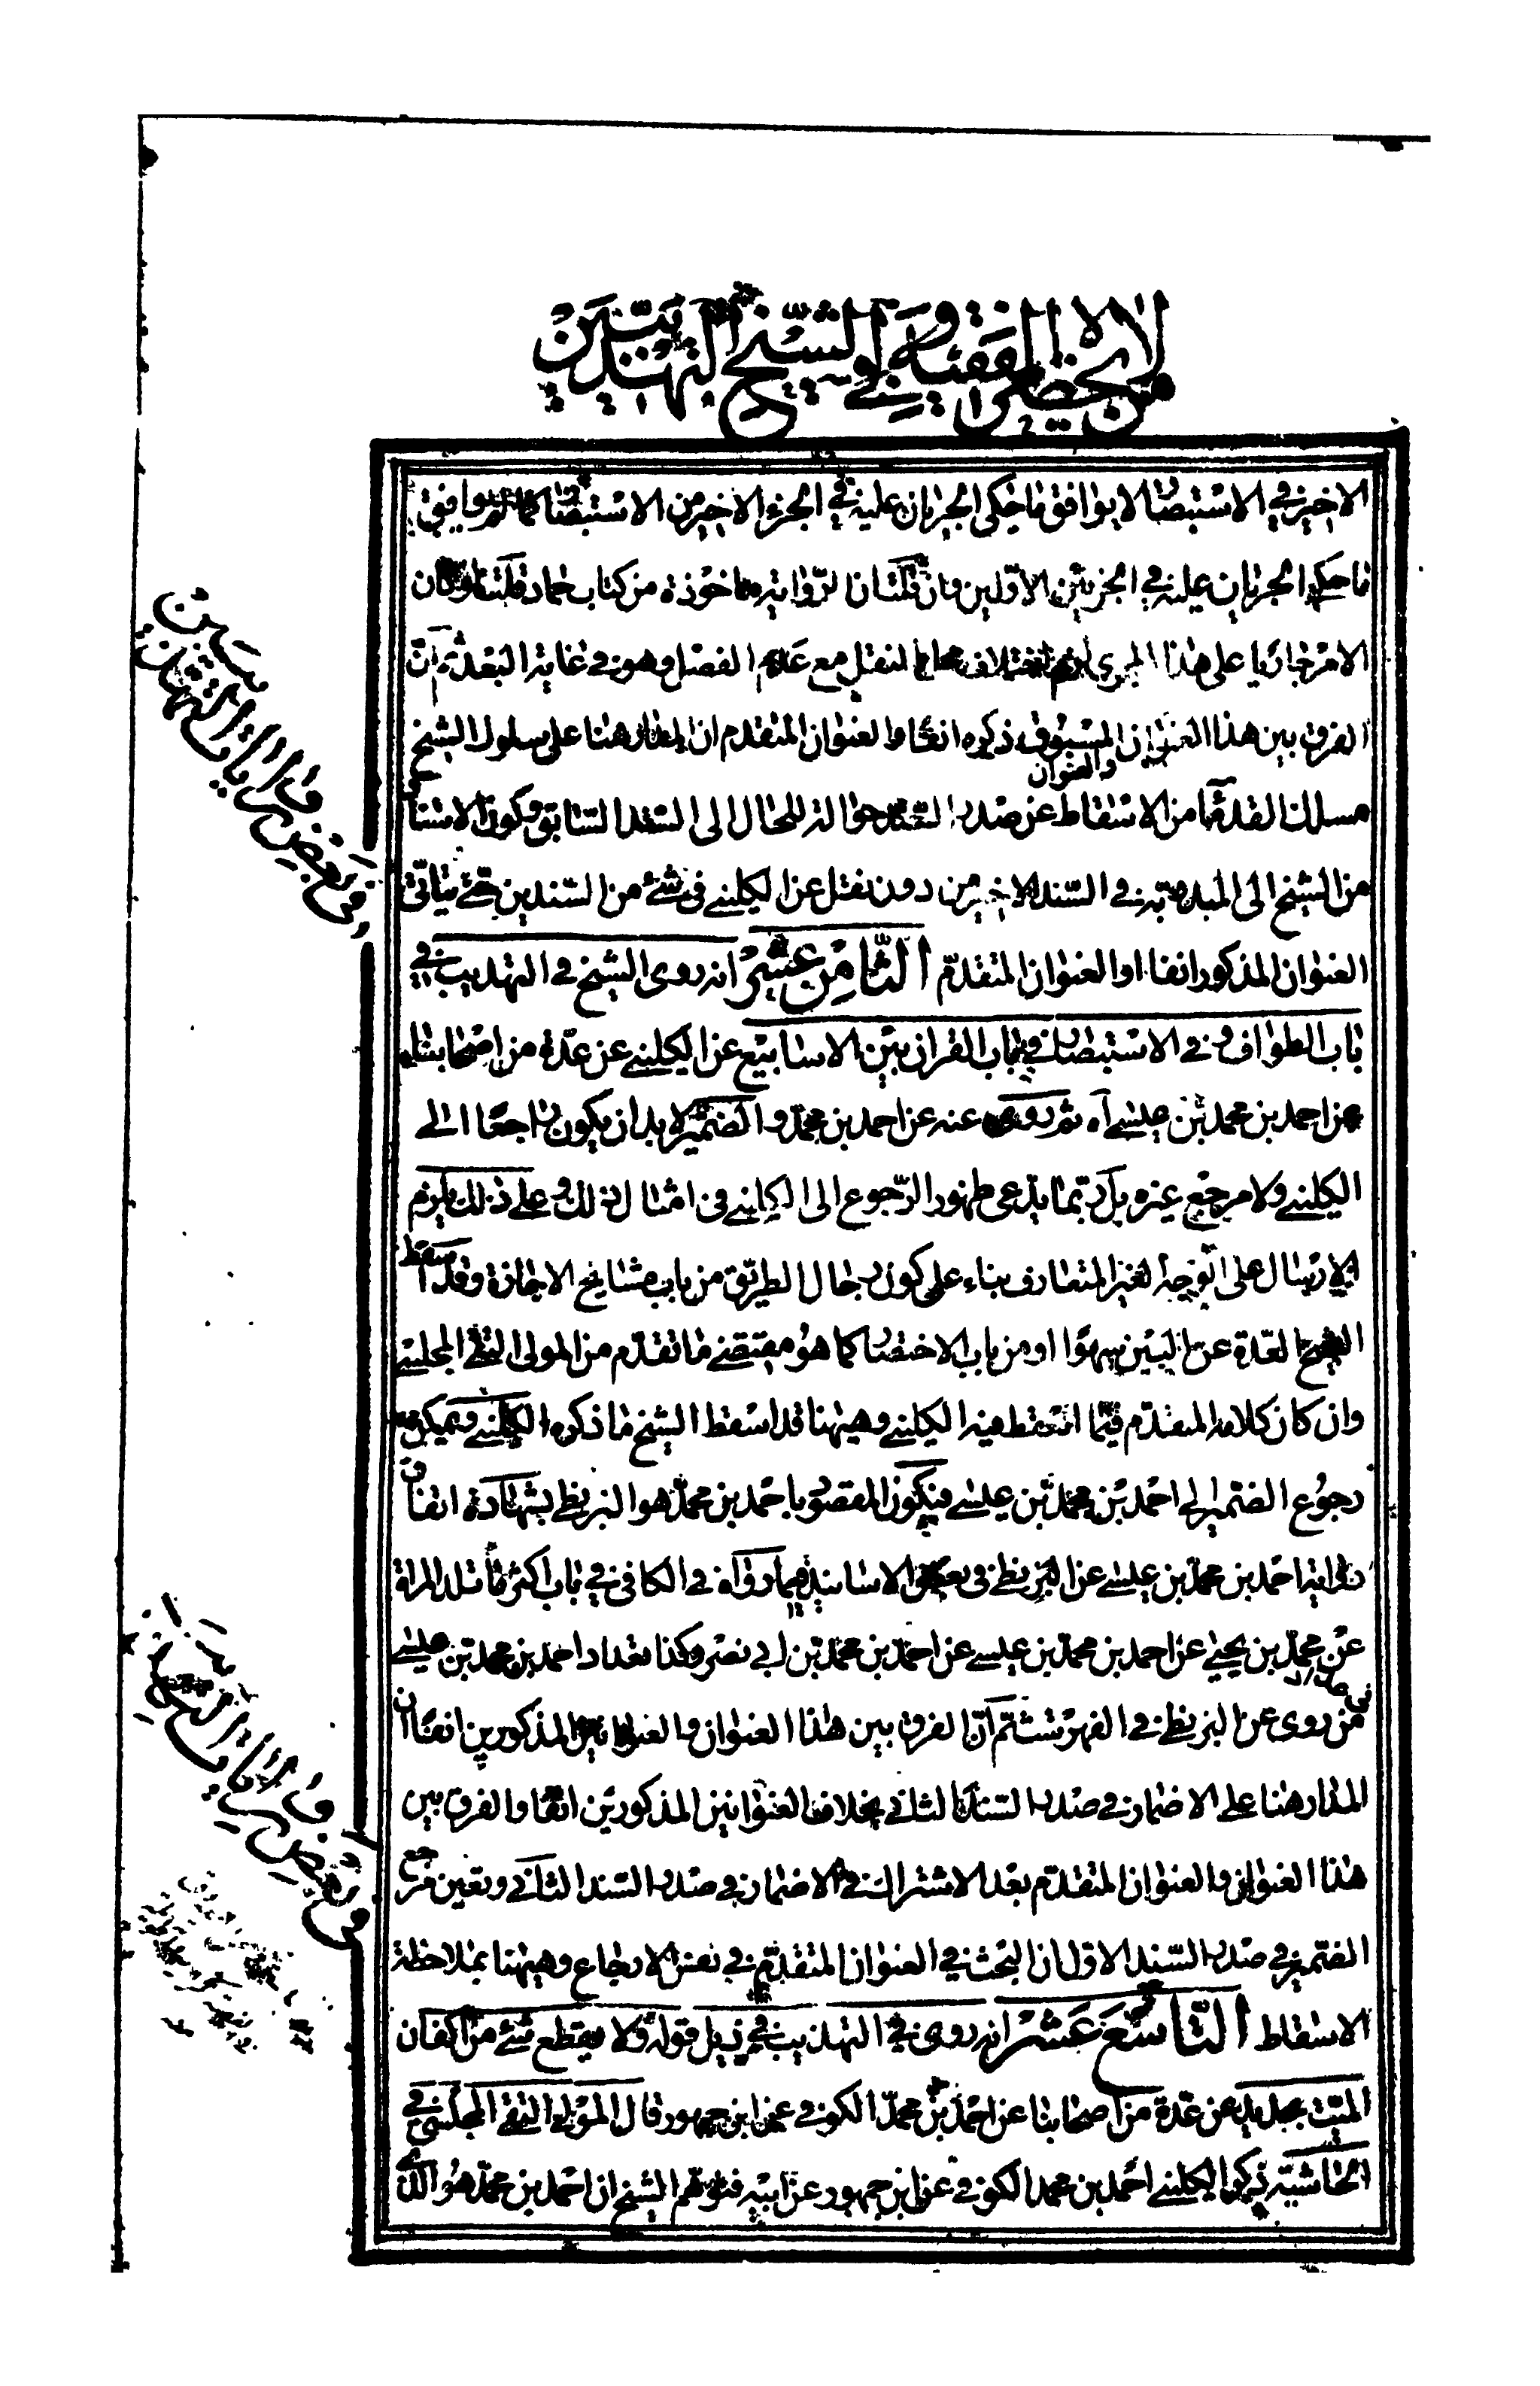 من لا يحضره الفقيه والشيخ في التهذيبين
الاخير في الاستبصار لا يوافق ما حكى الجريان عليه في الجزء الاخير من الاستبصار كما لم يوافق
ما حكى الجريان عليه في الجزئين الاولين وان قلت ان الرواية ماخوذة من كتاب حماد قلت لو كان
الامر جاريا على هذا المجرى لزم اختلاف النقل مع عدم الفصل وهو في غاية البعد ثم ان
الفرق بين هذا العنوان المسبوق ذكره انفا والعنوان المتقدم ان المدار هنا على سلوك الشيخ
والعنوان
مسلك القدماء من الاسقاط عن صدر السند حوالة للحال الى السند السابق وكون الاستناد
من الشيخ الى المبدو به في السند الاخير من دون نقل عن الكليني في شئ من السندين حتى يتاتى
العنوان المذكور انفا او العنوان المتقدم الثامن عشر انه روى الشيخ في التهذيب في
باب الطواف وفي الاستبصار في باب القران بين الاسابيع عن الكليني عن عدة من اصحابنا
عن احمد بن محمد بن عيسى آه ثم روى عنه عن احمد بن محمد والضمير لا بد ان يكون راجعا الى
الكليني ولا مرجع غيره بل ربما يدعى ظهور الرجوع الى الكليني في امثال ذلك وعلى ذلك يلزم
الارسال على الوجه الغير المتعارف بناء على كون رجال الطريق من باب مشايخ الاجازة وقد اسقط
الشيخ العدة عن البين سهوا او من باب الاختصار كما هو مقتضى ما تقدم من المولى التقي المجلسي
وان كان كلامه المتقدم فيما اسقط فيه الكليني وهيهنا قد اسقط الشيخ ما ذكره الكليني ويمكن
رجوع الضمير الى احمد بن محمد بن عيسى فيكون المقصود باحمد بن محمد هو البزنطي بشهادة اتفاق
رواية احمد بن محمد بن عيسى عن البزنطي في بعض الاسانيد فيما رواه في الكافي في باب اكثر ما تلد المراة
عن محمد بن يحيى عن احمد بن محمد بن عيسى عن احمد بن محمد بن ابي نصر وكذا تعداد احمد بن محمد بن عيسى
من روى عن البزنطي في الفهرست ثم ان الفرق بين هذا العنوان والعنوانين المذكورين انفا ان
المدار هنا على الاضمار في صدر السند الثاني بخلاف العنوانين المذكورين انفا والفرق بين
هذا العنوان والعنوان المتقدم بعد الاشتراك في الاضمار في صدر السند الثاني وتعين مرجع
الضمير في صدر السند الاول ان البحث في العنوان المتقدم في نفس الارجاع وهيهنا بملاحظة
الاسقاط التاسع عشر انه روى في التهذيب في ذيل قوله ولا يقطع شئ من اكفان
الميت بحديد عن عدة من اصحابنا عن احمد بن محمد الكوفي عن ابن جمهور قال المولى التقي المجلسي في
الحاشية ذكر الكليني احمد بن محمد الكوفي عن ابن جمهور عن ابيه فتوهم الشيخ ان احمد بن محمد هو الذي